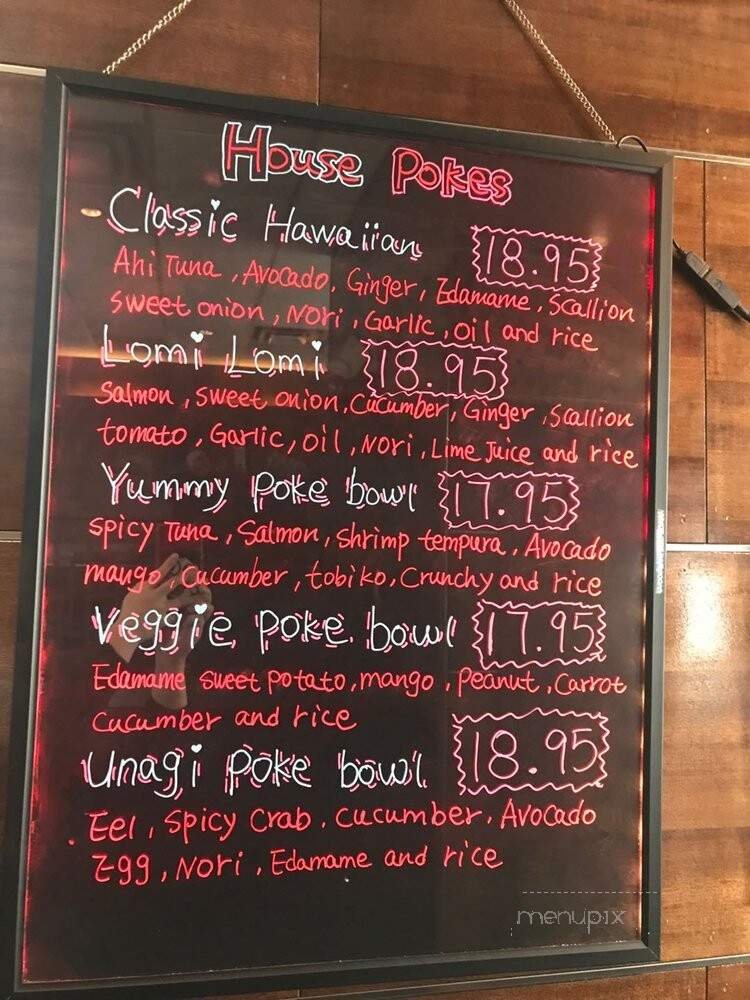 House Pokes
Classic Hawaiian 18.95
Ahi Tuna, Avocado, Ginger, Edamame, Scallion
sweet onion, Nori, Garlic, oil and rice
Lomi Lomi 18.95
Salmon, sweet onion, Cucumber, Ginger, Scallion
tomato, Garlic, oil, Nori, Lime Juice and rice
Yummy Poke bowl 17.95
spicy Tuna, Salmon, shrimp tempura, Avocado
mango, Cucumber, tobiko, Crunchy and rice
Veggie poke bowl 17.95
Edamame sweet potato, mango, peanut, Carrot
cucumber and rice
Unagi Poke bowl 18.95
Eel, spicy Crab, cucumber, Avocado
Egg, Nori, Edamame and rice
menupix